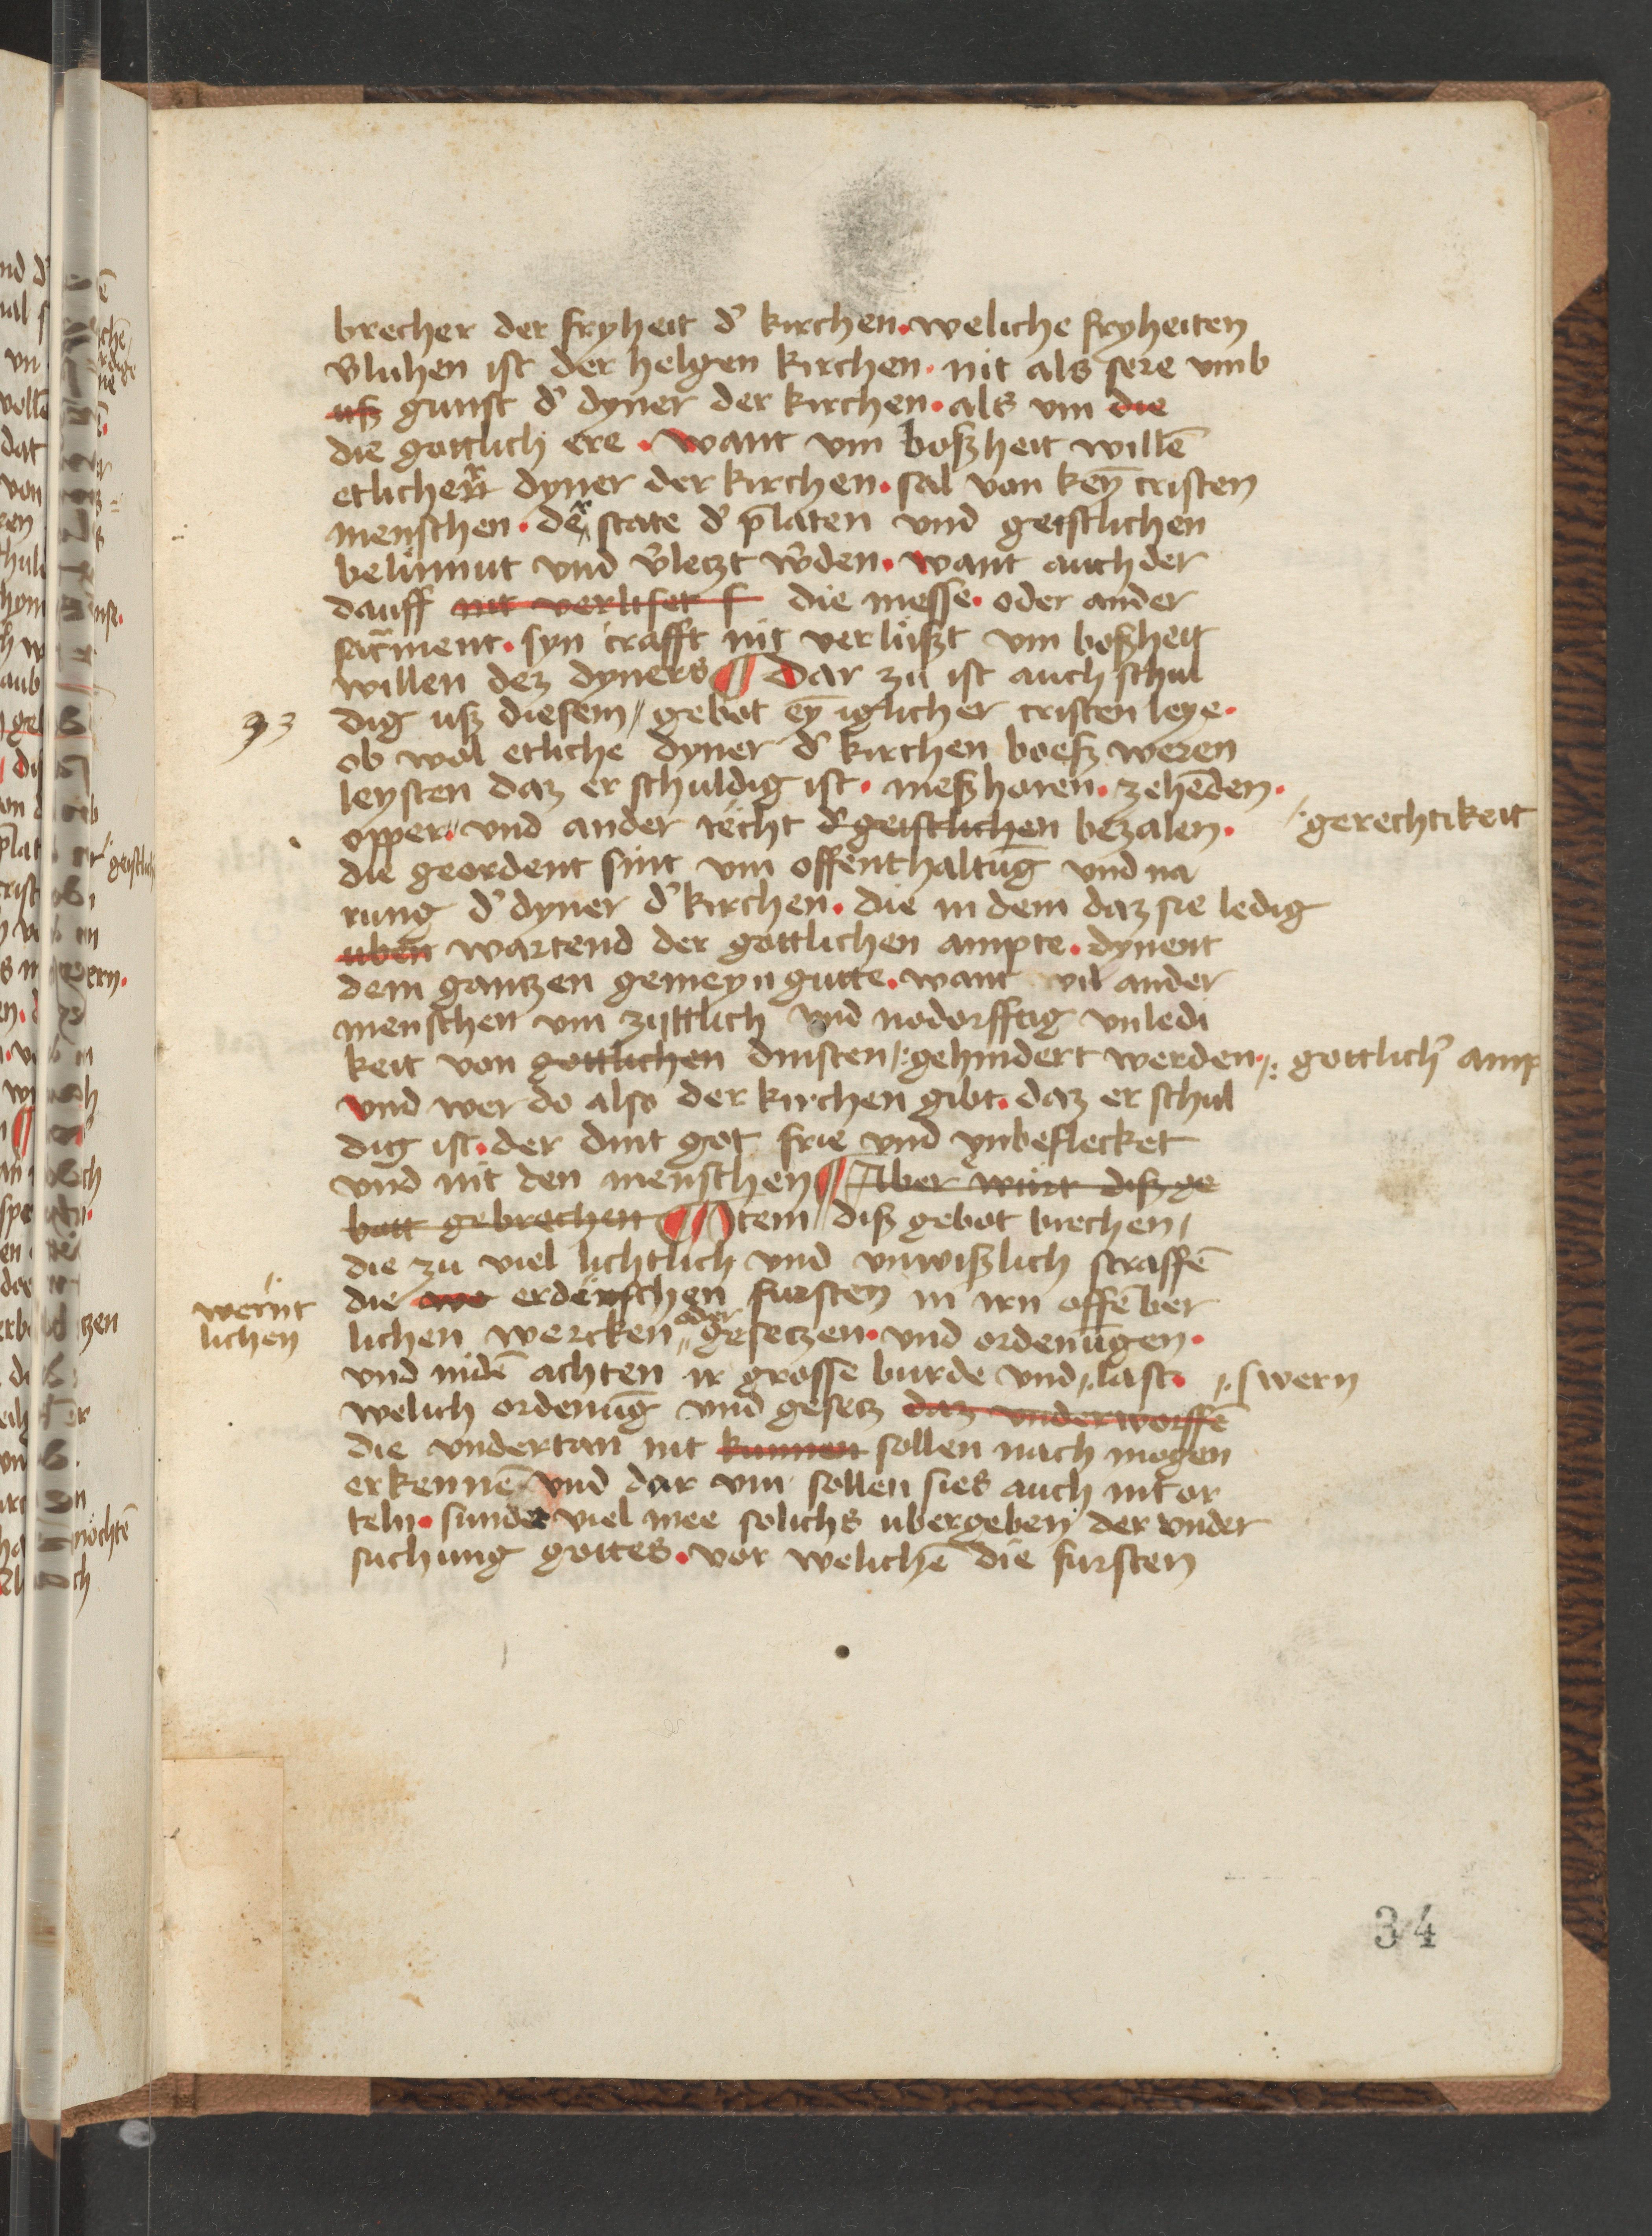 brecher der fryheit d' kirchen. weliche fryheiten
v̉luhen ist der helgen kirchen. nit als sere vmb
uſz gunst d' dyner der kirchen. als vm die
die gottlich ere. want vm boſzheit willē
etlicher dyner der kirchen. sal von keȳ cristen
menschen. der state d' p̄laten vnd geistlichen
belumut vnd v̉letzt w̉den. want auch der
dauff nit verliset f die messe. oder ander
sacment. syn crafft nit verluſzt vm boſzheit
willen dez dyners ¶ Dar zu ist auch schul
dig uſz diesem gebot eȳ iglicher cristen leye.
ob wol etliche dyner d' kirchen boeſz weren
leysten daz er schuldig ist. meſzhoren. zehēden.
opper. vnd ander recht d' geistlichen bezalen. gerechtikeit
die geordent sint vm offenthaltūg vnd na
rung d' dyner d' kirchen. die in dem daz sie ledig
uben wartend der gottlichen ampte. dynent
dem gantzen gemeyn gutte. want vil ander
menschen vm zyttlich vnd nodorfftig vnledi
keit von gottlichen dinsten gehindert werden. gottlich' amp
vnd wer do also der kirchen gibt. daz er schul
dig ist. der dint got frie vnd vnbeflecket
vnd nit den menschen ¶ Aber wurt diſz ge
bott gebrechen ¶ Item diſz gebot brechen
die zu viel lichtlich vnd vnwiſzlich straffē
wernt
lichen
die we erdenschen fursten in irn offēber
lichen wercken oder gesetzen. vnd ordenūgen.
vnd nidē achten ir grosse burde vnd last. swern
welich ordenūg vnd gesetz daz vnderworffē
die vndertan nit kunnen sollen nach mogen
erkennē vnd dar vm sollen sies auch nit or
teln. sunder viel mee solichs ubergeben der vnder
suchung gottes. vor welichē die fursten
34